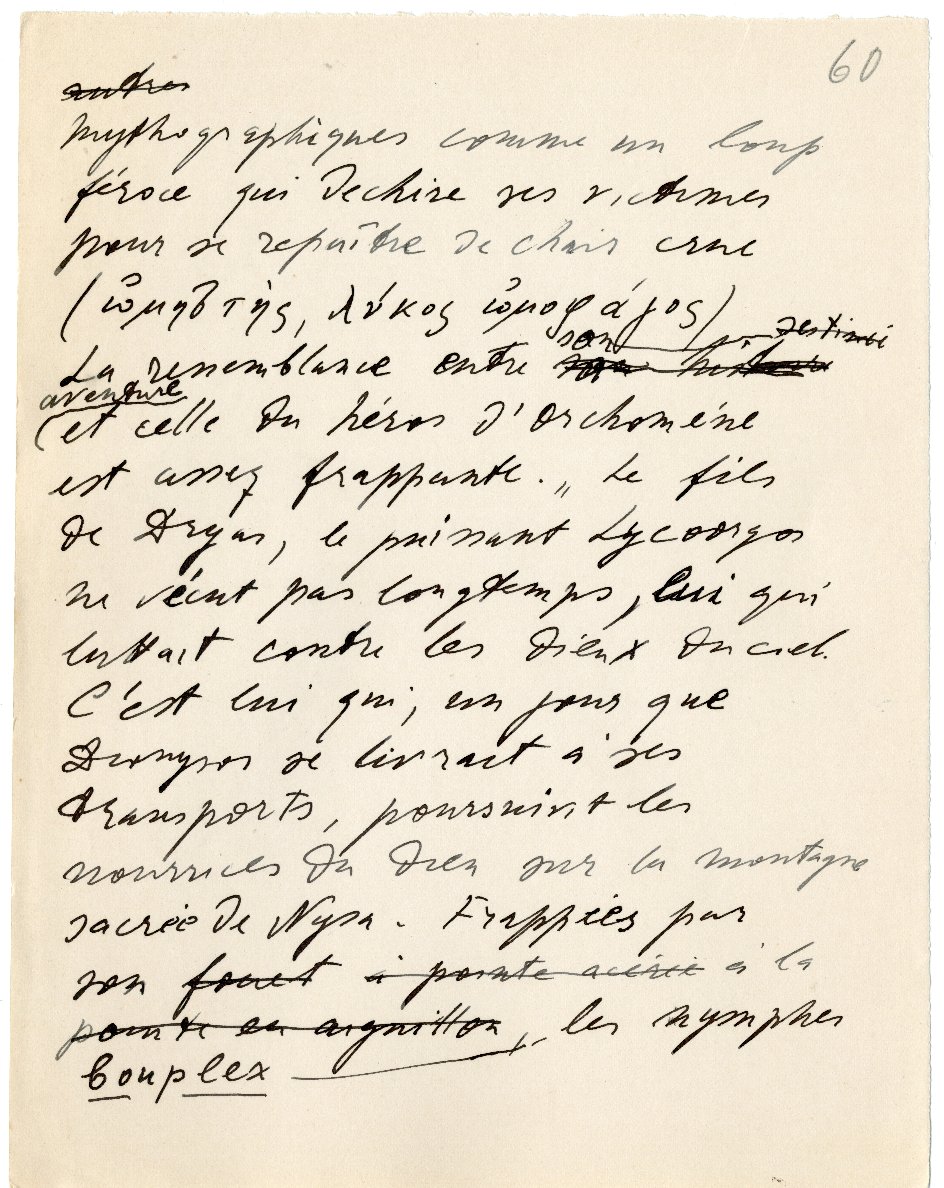 60
autres
mythographiques comme un loup
féroce qui déchire ses victimes
pour se repaître de chair crue
(ὠμηστής, λύκος ὠμοφάγος)
son destinée
La ressemblance entre son histoire
aventure
et celle du héros d'Orchomène
est assez frappante. „ Le fils
de Dryas, le puissant Lycoorgos
ne vécut pas longtemps, lui qui
luttait contre les dieux du ciel.
C'est lui qui, un jour que
Dionysos se livrait à ses
transports, poursuivit les
nourrices du dieu sur la montagne
sacrée de Nysa. Frappées par
son fouet à pointe acérée à la
pointe en aiguillon, les nymphes
bouplex